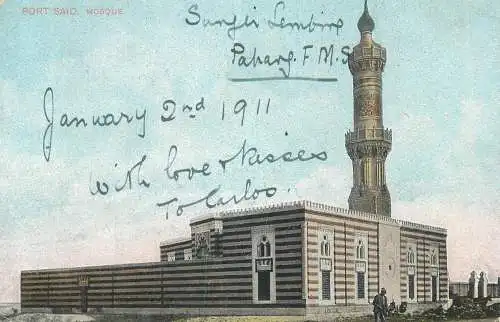 PORT SAID. MOSQUE
Sungei Lembing
Pahang. F.M.S.
January 2nd 1911
with love & kisses
To Carlos.